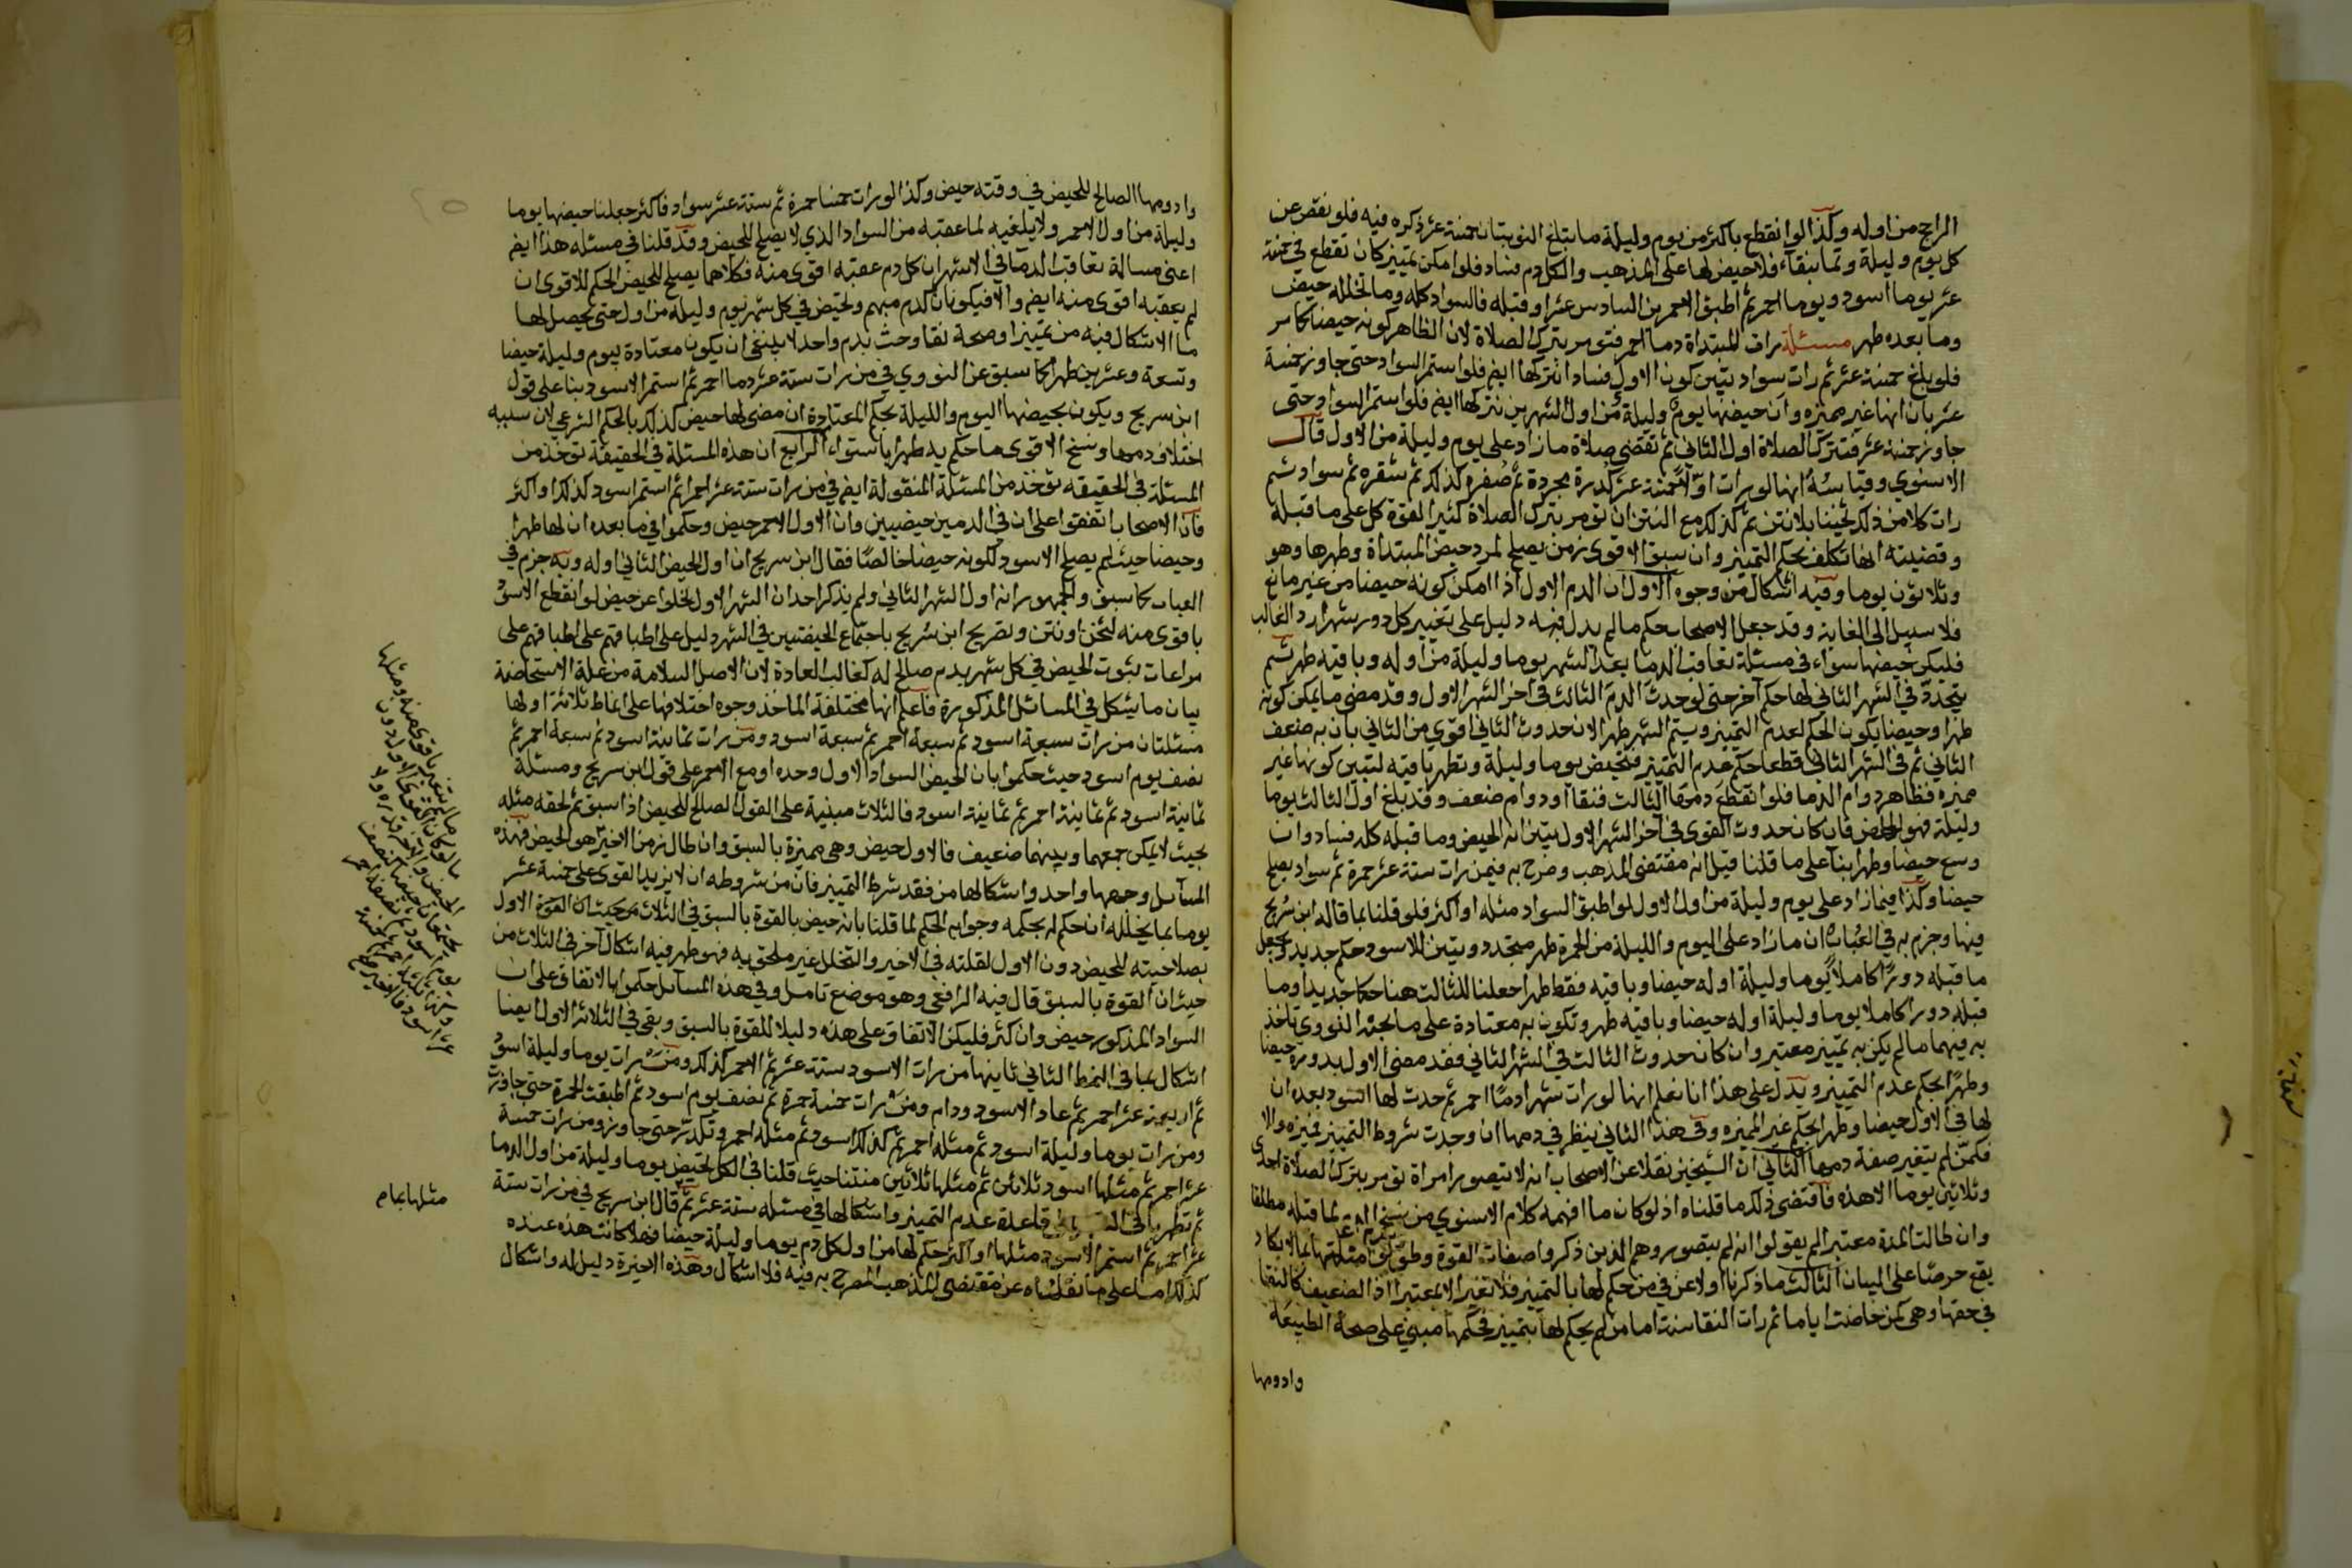 الراجح من اوله وكذا لوانقطع باكثر من يوم وليلة ما بتلغ النوبتان خمسة عشر ذكره فيه فلو نقص عن
كل يوم وليلة وتما بنقاء فلا حيض لها على المذهب والكل دم فساد فلو امكن تمييز كان تقطع في خمسة
عشر يوما اسود ويوما احمر ثم اطبق الاحمر من السادس عشر او قبله فالسواد كله وما تخلله حيض
وما بعده طهر مسئلة رات المبتداة دما احمر فتومر بترك الصلاة لان الظاهر كونه حيضا كما مر
فلو بلغ خمسة عشر ثم رات سواد تبين كون الاول فسادا نتركها ايضم فلو استمر السواد حتى جاوز خمسة
عشر بان انها غير مميزه وان حيضها يوم وليلة من اول الشهرين نتركها ايضم فلو استمر السواد حتى
جاوز خمسة عشر فتترك الصلاة اول الثاني ثم تقضي صلاة ما زاد على يوم وليلة من الاول قال
الاسنوي وقياسه انها لو رات اولا خمسة عشر كدرة مجردة ثم صفره كذلك ثم شقره ثم سواد ثم
رات كلا من ذلك بثخينا بلا نتن ثم كذلك مع النتن ان تومر بترك الصلاة كثيرا لقوة كل على ما قبله
وقضيته انها تكلف بحكم التمييز وان سبق الاقوى زمن يصلح لمرد حيض المبتداة وطهرها وهو
وثلاثون يوما وفيه اشكال من وجوه الاول ان الدم الاول اذا امكن كونه حيضا من غير مانع
فلا سبيل الى الغاية وقد جعل الاصحاب حكم ما لم يدل فيه دليل على تغيير كل دور شهر ارد الغالب
فليكن حيضها سواء في مسئلة تعاقب الدما بعد الشهر يوما وليلة من اوله وباقيه طهر ثم
يتجدد في الشهر الثاني لها حكم آخر حتى لو حدث الدم الثالث في اخر الشهر الاول وقد مضى ما يمكن كونه
طهرا وحيضا يكون الحكم لعدم التمييز ويتم الشهر طهرا لان حدوث الثاني اقوى من الثاني بان به ضعف
الثاني ثم في الشهر الثاني قطعا حكم عدم التمييز فتحيض يوما وليلة وتطهر باقيه لتبين كونها غير
مميزه فظاهر دوام الدما فلو انقطع دمها الثالث فنقا او دوام ضعف وقد بلغ اول الثالث يوما
وليلة فهو الحيض فان كان حدوث القوى في آخر الشهر الاول تبين انه الحيض وما قبله كله فساد وان
وسع حيضا وطهرا بنا على ما قلنا قيل انه مقتضى المذهب وصرح به فيمن رات ستة عشر حمرة ثم سواد يصلح
حيضا وكذا فيما زاد على يوم وليلة من اول الاول لو اطبق السواد مثله او اكثر فلو قلنا بما قاله ابن سريج
فيها وجزم به في العباب ان ما زاد على اليوم والليلة من الحمرة طهر متجدد ويتبين للاسود حكم جديد ويجعل
ما قبله دورا كاملا يوما وليلة اوله حيضا وباقيه فقط طهرا جعلنا للثالث هنا حكما جديدا وما
قبله دورا كاملا يوما وليلة اوله حيضا وباقيه طهر وتكون به معتادة على ما بحثه النووي تاخذ
به فيهما ما لم يكن به تمييز معتبر وان كان حدوث الثالث في الشهر الثاني فقد مضى الاول بدوره حيضا
وطهرا بحكم عدم التمييز ويدل على هذا انا نعلم انها لو رات شهرا دما احمر ثم حدث لها اسود بعده ان
لها في الاول حيضا وطهرا بحكم غير المميزه وفي هذا الثاني ينظر في دمها ان وجدت شروط التمييز فميزه والا
فكمن لم يتغير صفة دمها الثاني ان الشيخين نقلا عن الاصحاب انه لا تتصور امراة تومر بترك الصلاة احدى
وثلاثين يوما الا هذه فاقتضى ذلك ما قلناه اذ لو كان ما افهمه كلام الاسنوي من نسخ لما قبله مطلقا
وان طالت المدة معتبرا لم يقولوا انه لم يتصور وهم الذين ذكروا صفات القوة
يقع حرصا على البيان الثالث ما ذكرنا اولا عن في من حكم لها بالتمييز فلا تغير الا بمعتبر اذ الضعيف كالنقا
في حقها وهي كمن خاضت اياما ثم رات النقا سنة اما من لم يحكم لها بتمييز فحكمها مبني على صحة الطبيعة
وادومها
وادومها الصالح للحيض في وقته حيض وكذا لو رات خمسا حمرة ثم ستة عشر سواد فاكثر جعلنا حيضها يوما
وليلة من اول الاحمر ولا يلغيه لما عقبه من السواد الذي لا يصلح للحيض وقد قلنا في مسئله هذا ايضم
اعني مسالة تعاقب الدما في الاشهر ان كل دم عقبه اقوى منه فكلاهما يصلح للحيض الحكم للاقوى ان
لم يعقبه اقوى منه ايضم والا فيكونان كدم مبهم وتحيض في كل شهر يوم وليلة من اول حتى يحصل لها
ما لا اشكال فيه من تمييز او صحة نقا وحث بدم واحد لا ينبغي ان يكون معتادة بيوم وليلة حيضا
وتسعة وعشرين طهرا كما سبق عن النووي في من رات ستة عشر دما احمر ثم استمر الاسود بنا على قول
ابن سريج ويكون بحيضها اليوم والليلة بحكم المعتادة ان مضى لها حيض كذلك بالحكم الشرعي لان سببه
اختلاف دمها ونسخ الاقوى ما حكم به طهرا باستواء الرابع ان هذه المسئلة في الحقيقة توخذ من
المسئلة في الحقيقه توخذ من المسئلة المنقولة ايضم في من رات ستة عشر احمر ثم استمر اسود كذلك او اكثر
فان الاصحاب اتفقوا على ان في الدمين حيضيين وان الاول الاحمر حيض وحكموا في ما بعده ان لها طهرا
وحيضا حيث لم يصلح الاسود لكونه حيضا خالصا فقال ابن سريج ان اول الحيض الثاني اوله وبه جزم في
العباب كما سبق والجمهور انه اول الشهر الثاني ولم يذكر احد ان الشهر الاول يخلوا عن حيض لو انقطع الاسود
باقوى منه لثخن او نتن وتصريح ابن سريج باجتماع الحيضتين في الشهر دليل على اطباقهم على اطباقهم على
مراعات ثبوت الحيض في كل شهر بدم صالح له كغالب العادة لان الاصل السلامة من علة الاستحاضة
بيان ما يشكل في المسائل المذكورة فاعلم انها مختلفة الماخذ وجوه اختلافها على انماط ثلاثة اولها
مسئلتان من رات سبعة اسود ثم سبعة احمر ثم سبعة اسود ومن رات ثمانية اسود ثم سبعة احمر ثم
نصف يوم اسود حيث حكموا بان الحيض السواد الاول وحده او مع الاحمر على قول ابن سريج ومسئلة
ثمانية اسود ثم ثمانية احمر ثم ثمانية اسود فالثلاث مبنية على القول الصالح للحيض اذا سبق ثم لحقه مثله
بحيث لا يمكن جمعهما وبينهما ضعيف فالاول حيض وهي مميزة بالسبق وان طال زمن الاخير هو الحيض فهذه
المسآئل وجهها واحد واشكالها من فقد شرط التمييز فان من شروطه ان لا يزيد القوى على خمسة عشر
يوما بما يتخلله ان حكم له بحكمه وجوابه الحكم لما قلنا بانه حيض بالقوة بالسبق في الثلاث من حيث ان القوة الاول
بصلاحيته للحيض دون الاول لقلته في الاخير والتخلل غير ملحق به فهو طهر فيه اشكال آخر في الثلاث من
حيث ان القوة بالسبق قال فيه الرافعي وهو موضع تامل وفي هذه المسآئل حكموا بالاتفاق على ان
السواد المذكور حيض وان كثر فليكن الاتفاق على هذه دليلا للقوة بالسبق وبقي في الثلاثة الاول ايضا
اشكال بما في النمط الثاني ثاينها من رات الاسود ستة عشر ثم الاحمر كذلك ومن رات يوما وليلة اسود
ثم اربعة عشر احمر ثم عاد الاسود ودام ومن رات خمسة حمرة ثم نصف يوم اسود ثم اطبقت الحمرة حتى جاوزت
ومن رات يوما وليلة اسود ثم مثله احمر ثم كذلك اسود ثم مثله احمر وتكدر حتى جاوز ومن رات خمسة
عشر احمر ثم مثلها اسود ثلاثين ثم مثلها ثلاثين منتنا حيث قلنا في الكل تحيض يوما وليلة من اول الدما
ثم تطهر باقي قاعدة عدم التمييز واشكالها في مسئله ستة عشر ثم قال ابن سريج في من رات ستة
عشر احمر ثم استمر الاسود مثلها او اكثر حكم لها من اول كل دم يوما وليلة حيضا فهلا كانت هذه عنده
كذلك اما على ما نقلناه عن مقتضى المذهب المصرح به فيه فلا اشكال وهذه الاخيرة دليل له واشكال
مثلها بمام